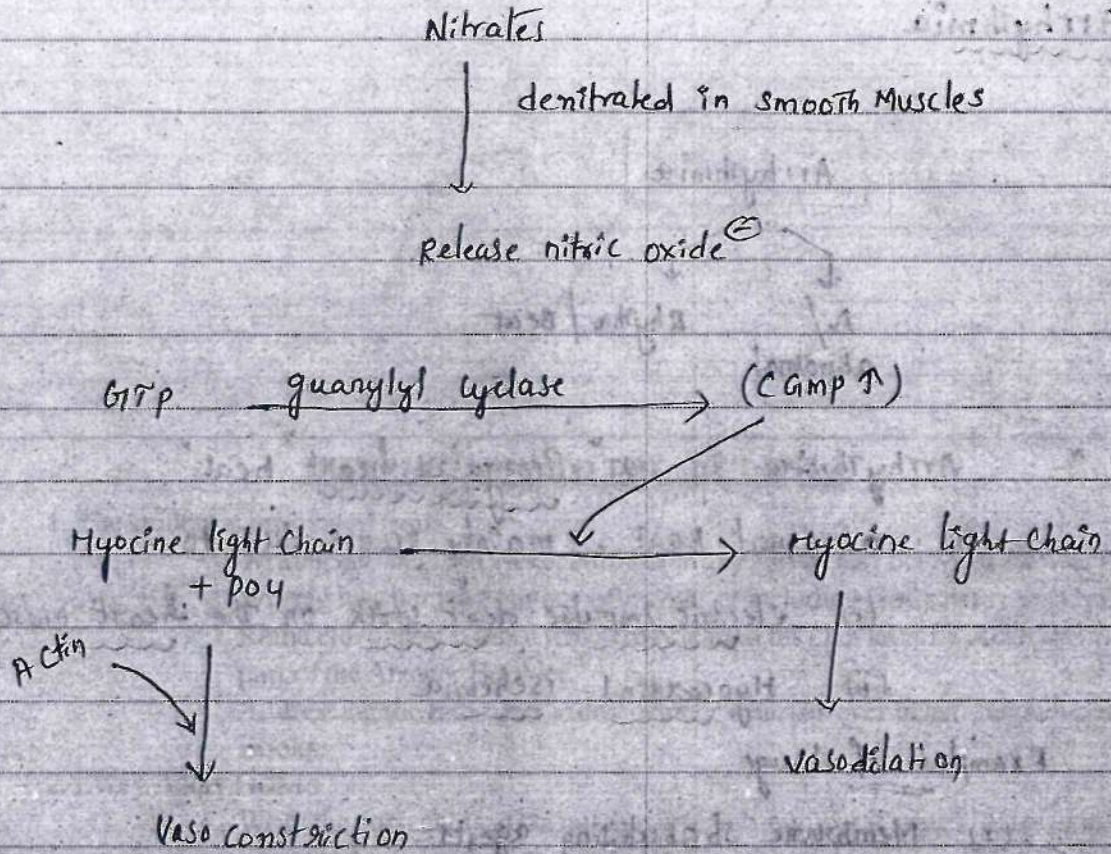 Nitrates
denitrated in smooth Muscles
Release nitric oxide
GTP guanylyl cyclase (CGmp ↑)
Myocine light Chain
+ po4
Myocine light Chain
Actin
Vasodilation
Vaso constriction